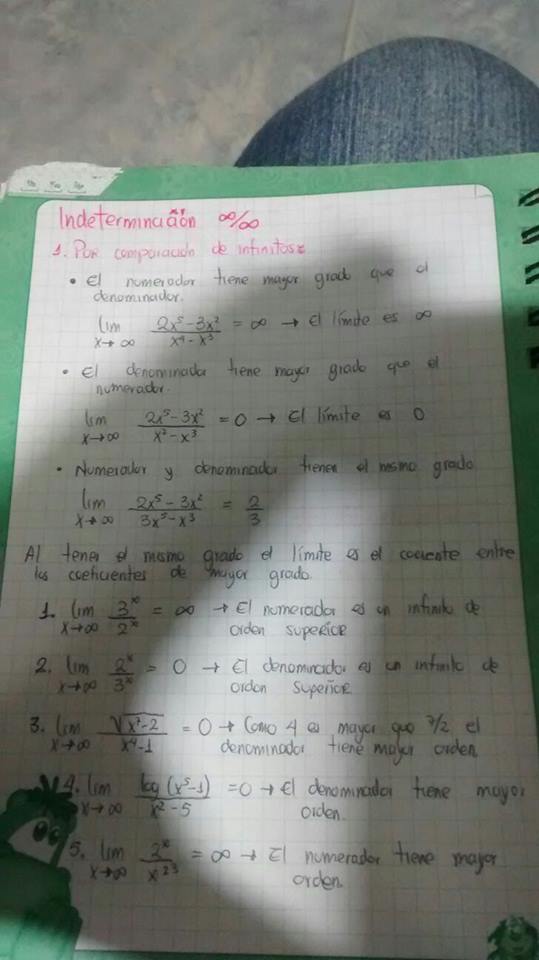 Indeterminación ∞/∞
1. Por comparación de infinitos:
• El numerador tiene mayor grado que el
denominador.
lim x→∞ (2x⁵ - 3x²)/(x⁴ - x³) = ∞ → El límite es ∞
• El denominador tiene mayor grado que el
numerador.
lim x→∞ (2x⁵ - 3x²)/(x⁷ - x³) = 0 → El límite es 0
• Numerador y denominador tienen el mismo grado
lim x→∞ (2x⁵ - 3x²)/(3x⁵ - x³) = 2/3
Al tener el mismo grado el límite es el cociente entre
los coeficientes de mayor grado.
1. lim x→∞ 3ˣ/2ˣ = ∞ → El numerador es un infinito de
orden superior
2. lim x→∞ 2ˣ/3ˣ = 0 → El denominador es un infinito de
orden superior.
3. lim x→∞ √(x⁷-2)/(x⁴-1) = 0 → Como 4 es mayor que 7/2 el
denominador tiene mayor orden.
4. lim x→∞ log(x⁵-1)/(x²-5) = 0 → El denominador tiene mayor
orden.
5. lim x→∞ 2ˣ/x²³ = ∞ → El numerador tiene mayor
orden.